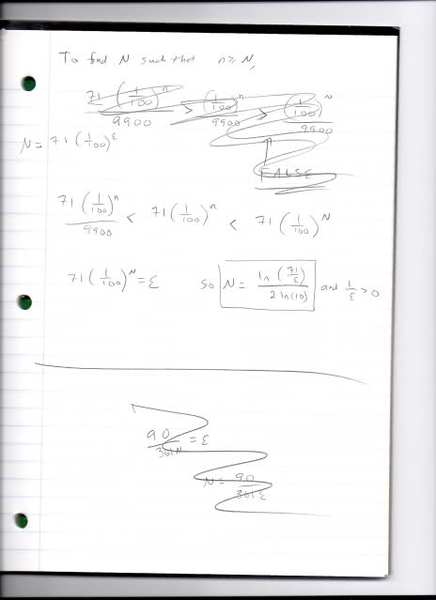 To find N such that n ≥ N,
71 (1/100)^n / 9900 > (1/100)^n / 9900 > (1/100)^N / 9900
N = 71 (1/100)^ε
FALSE
71 (1/100)^n / 9900 < 71 (1/100)^n < 71 (1/100)^N
71 (1/100)^N = ε so N = ln (71/ε) / 2 ln(10) and 1/ε > 0
90 / 361N = ε
N = 90 / 361ε